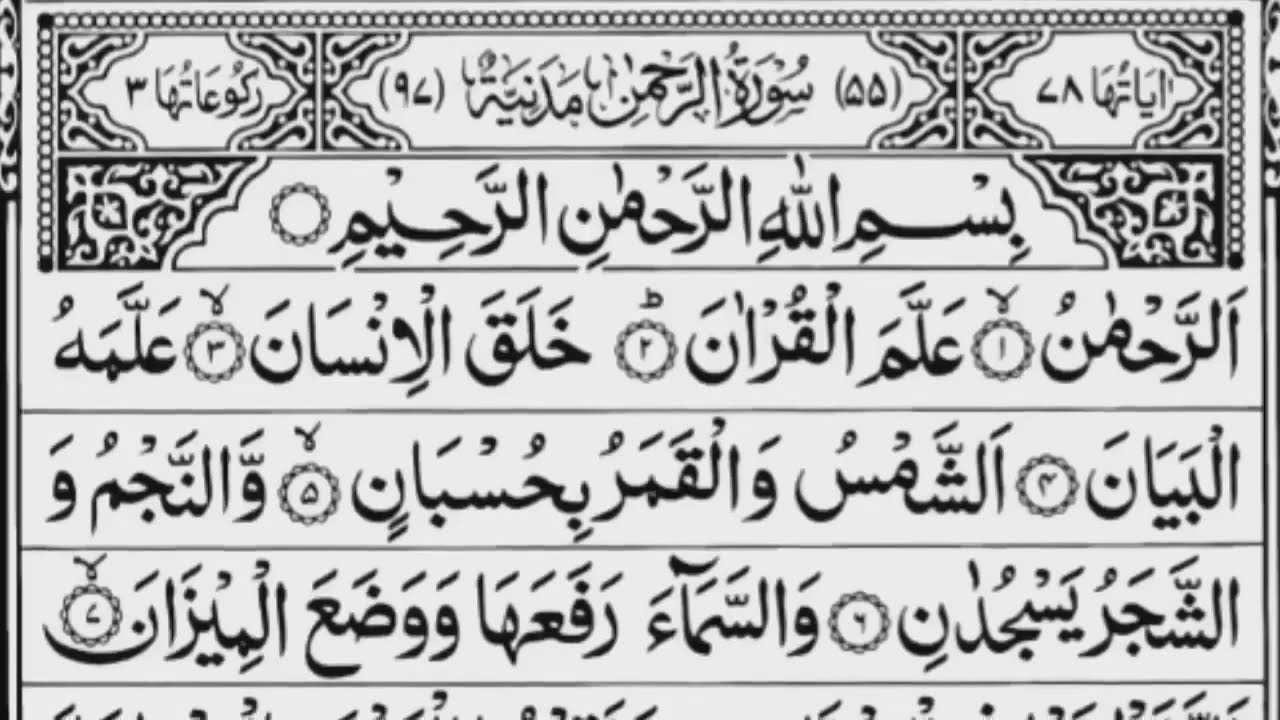 اٰيَاتُهَا ٧٨
(٥٥) سُوْرَةُ الرَّحْمٰنِ مَدَنِيَّةٌ (٩٧)
رُكُوْعَاتُهَا ٣
بِسْمِ اللّٰهِ الرَّحْمٰنِ الرَّحِيْمِ
اَلرَّحْمٰنُ ۙ﴿١﴾ عَلَّمَ الْقُرْاٰنَ ؕ﴿٢﴾ خَلَقَ الْاِنْسَانَ ۙ﴿٣﴾ عَلَّمَهُ
الْبَيَانَ ﴿۴﴾ اَلشَّمْسُ وَالْقَمَرُ بِحُسْبَانٍ ۙ﴿۵﴾ وَّالنَّجْمُ وَ
الشَّجَرُ يَسْجُدٰنِ ﴿٦﴾ وَالسَّمَآءَ رَفَعَهَا وَوَضَعَ الْمِيْزَانَ ۙ﴿٧﴾